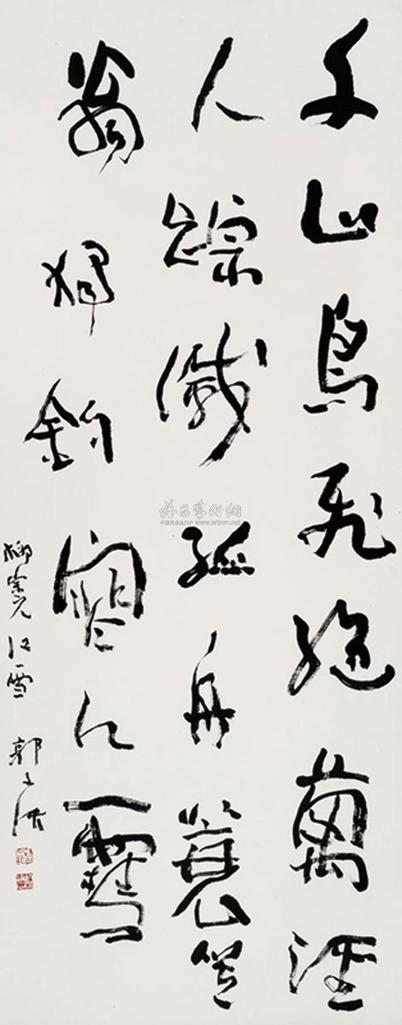 千山鳥飛絕萬徑
人踪滅孤舟蓑笠
翁獨釣寒江雪
柳宗元江雪 郭子緒
www.artron.net